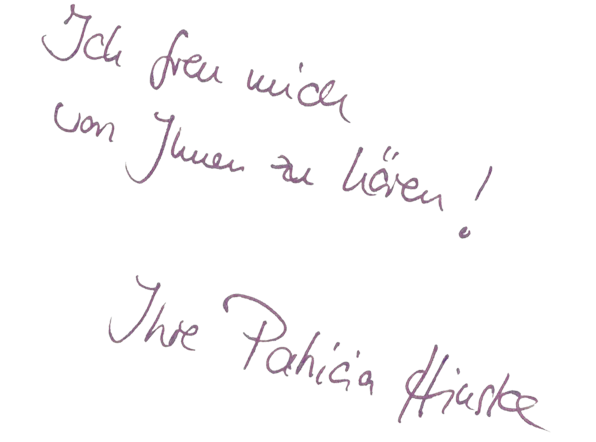 Ich freu mich
von Ihnen zu hören!
Ihre Patricia Hinske